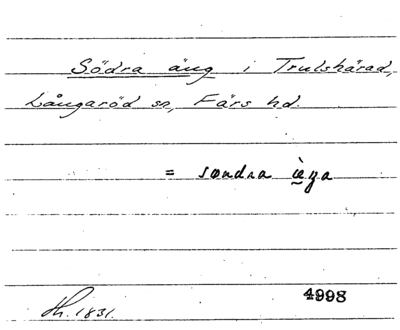 Södra äng i Trulshärad,
Långaröd sn, Färs hd.
= søndra
4998
1831.